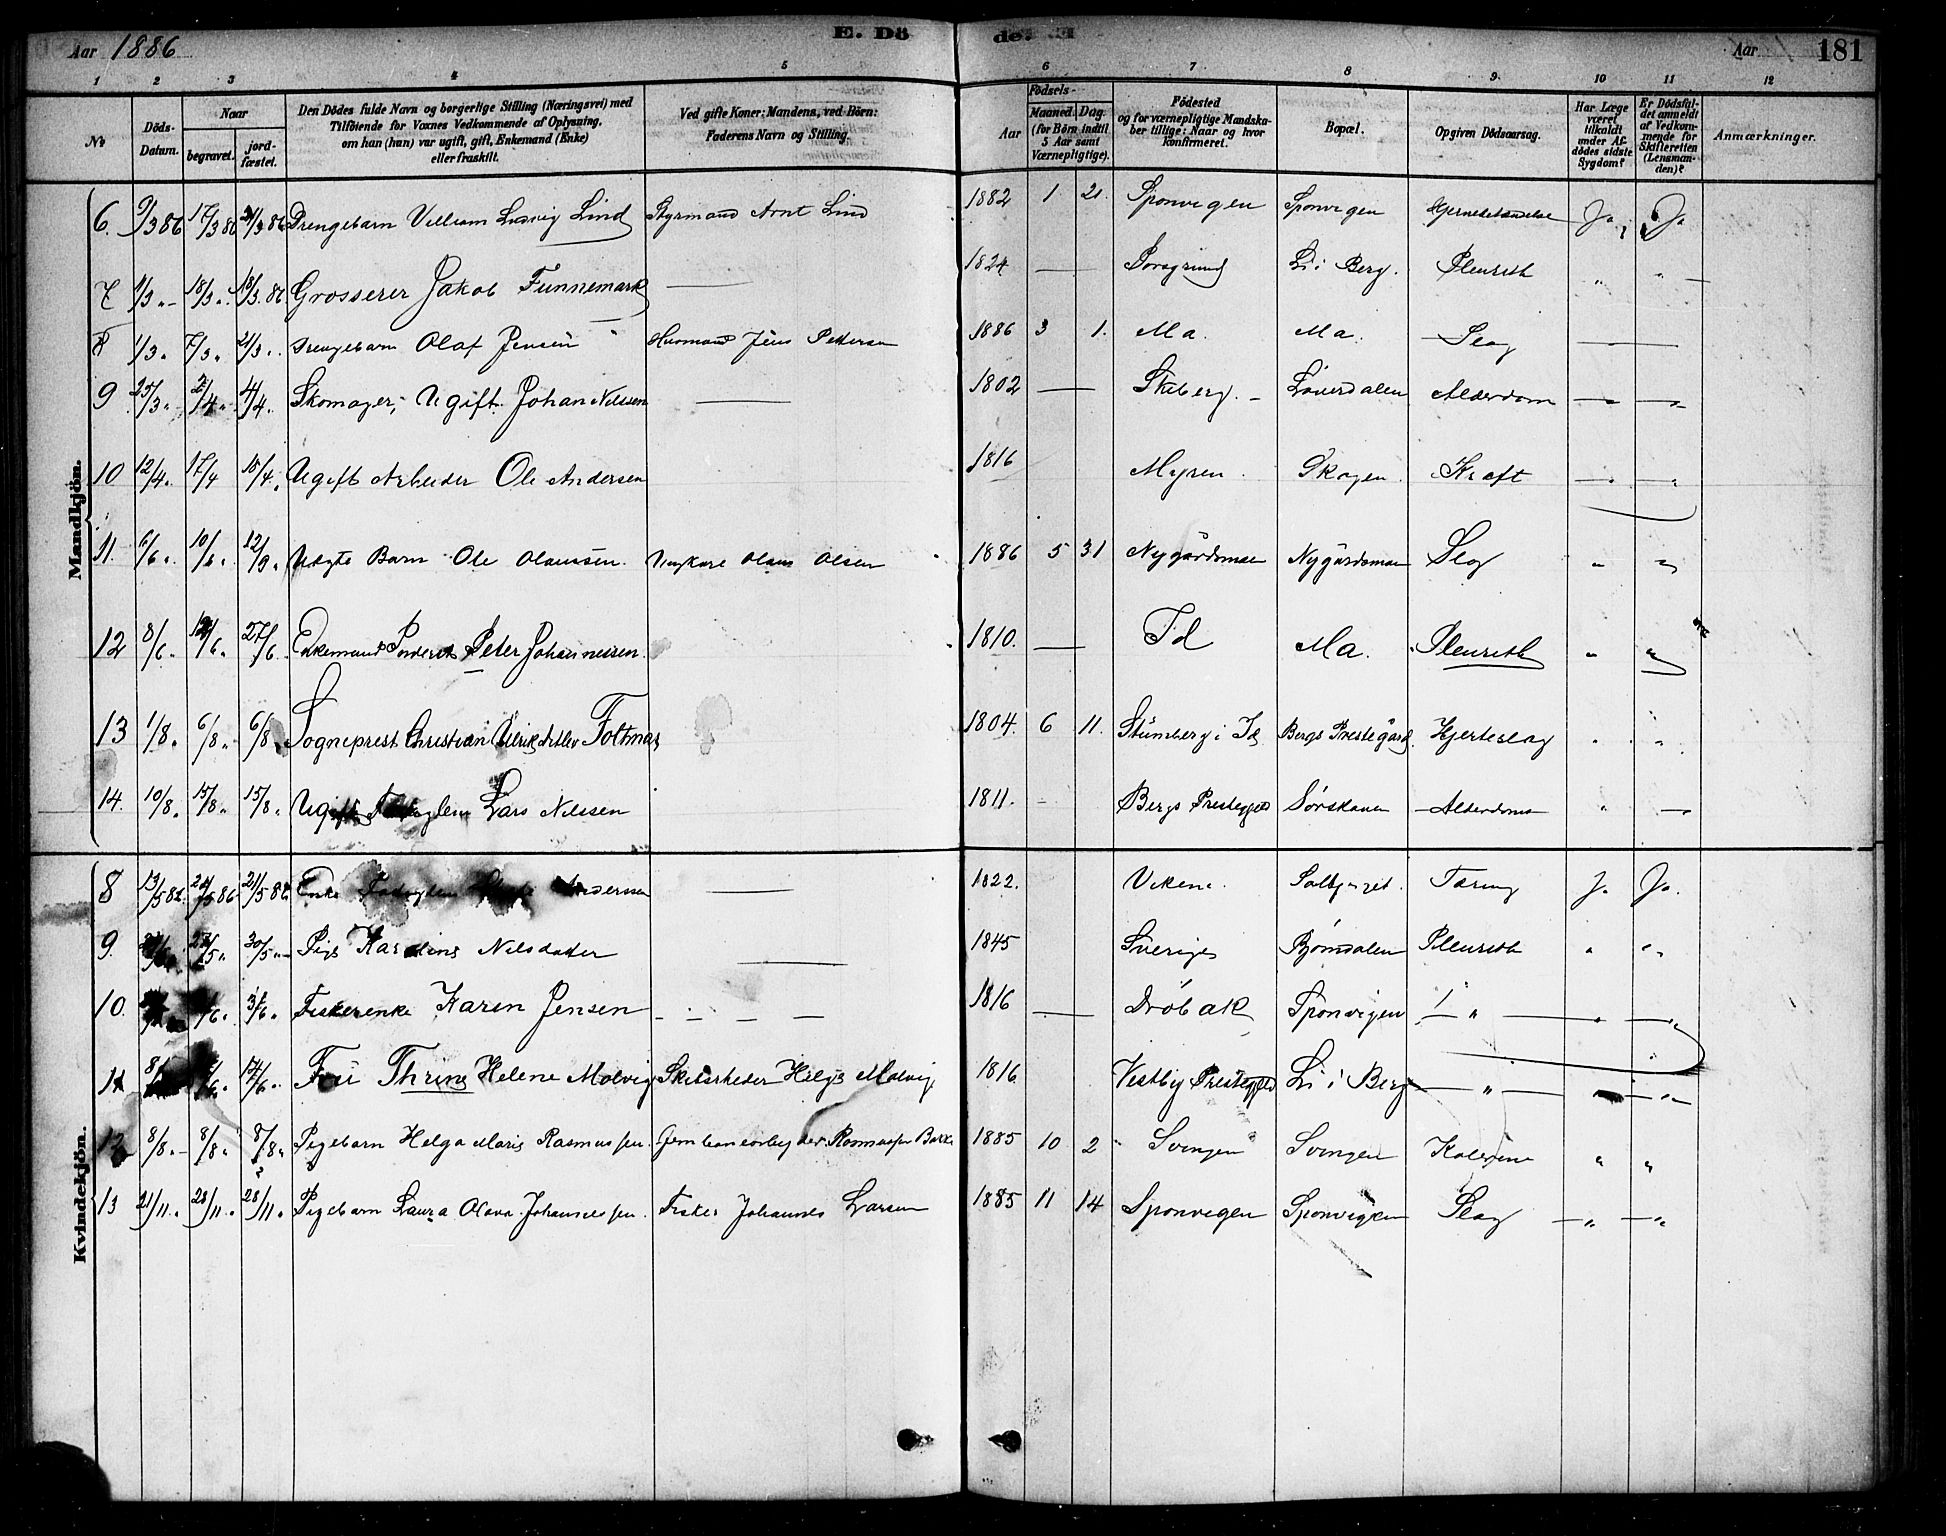 Aar 1886 E. Dö de. Aar 181
1 2 3 4 5 6 7 8 9. 10 11 12
No Döds-Datum. Naar begravet. jord-fæstet. Den Dödes fulde Navn og borgerlige Stilling (Næringsvei) med Tilföiende for Voxnes Vedkommende af Oplysning, om han (hun) var ugift, gift, Enkemand (Enke) eller fraskilt. Ved gifte Koner: Mandens, ved Börn: Faderens Navn og Stilling. Födsels- Aar Maaned. Dag. (for Börn indtil 5 Aar samt Værnepligtige). Födested og for værnepligtige Mandskaber tillige: Naar og hvor konfirmeret. Bopæl. Opgiven Dödsaarsag. Har Læge været tilkaldt under Afdödes sidste Sygdom? Er Dödsfaldet anmeldt af Vedkommende for Skifteretten (Lensmanden)? Anmærkninger.
Mandkjön.
6. 9/3 86 17/3 86 21/3 86 Drengebarn Villiam Ludvig Lind Styrmand Arnt Lind 1882 1 21. Sponvigen Sponvigen Hjernebetændelse Ja Ja
7 18/3 18/3 86 Grosserer Jakob Funnemark — 1824 — Porsgrund Li i Berg. Pleurith " "
8 1/3 " 7/3 " 21/3 " Drengebarn Olaf Jensen Husmand Jens Pettersen 1886 3 1. Ma. Ma. Slag —
9 25/3 " 2/4 " 4/4. Skomager, Ugift Johan Nilssen — 1802 — Skiberg Alderdom — —
10 12/4 " 17/4 18/4 " Ugift Arbeider Ole Andersen 1816 Myren Skogen Kræft — —
11. 6/6 " 10/6 " 12/9 " Udøbt Barn Ole Olaussen. Olaus Olsen 1886 5 31 Nygårdsmoen Nygårdsmoen Slag " "
12 8/6 " /6 " 27/6 Enkemand Peter Johannessen. 1810. — Id Ma. Pleurith " "
13 1/8 " 6/8 " 6/8 " Sogneprest Christian Ulrik Detlev Foltmar 1804. 6 11. i Id Bergs Prestegård Hjerteslag " "
14. 10/8 " 15/8 " 15/8 " Ugift Lars Nilssen 1811. - Bergs Prestegjeld Alderdoms " —
Kvindekjön.
8 13/5 86 /5 86 21/5 86 Enke Anderssen — 1822. Vikene Tæring Ja Ja.
9. /5 " 30/5 " Pige Nilsdatter — 1845 Sverige Bjørnsdalen Pleurith " "
10. /6 " 3/6 " Fiskerenke Karen Jensen — — — — 1816 — Drøbak Sponvigen — " — " — "
11 /6 " 14/6 " Fru Thrine Helene Molvig Skibsrheder Helge Molvig 1816 Vestby Prestegjeld Li i Berg — " — "
12 8/8 " 8/8 " 8/8 " Pigebarn Helga Marie Rasmussen Jernbanearbeyder Rasmussen Bakke 1885 10 2 Svingen Svingen Kolerine " "
13 21/11 " 28/11 " 28/11 " Pigebarn Laura Olava Johannessen. Fisker Johannes Larsen 1885 11 14 Sponvigen Sponvigen Slag — " — "